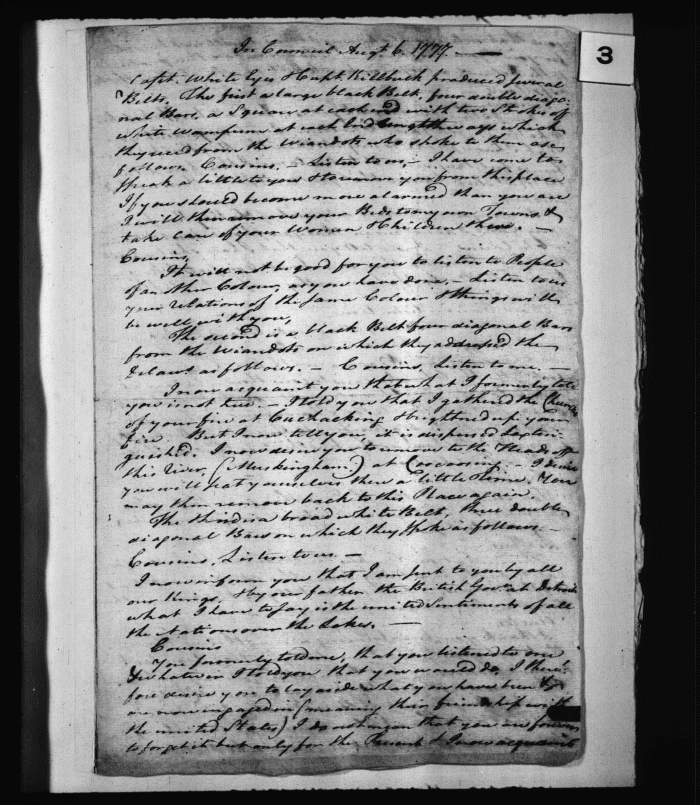 In Council Augt. 6. 1777.
3
Capt. White Eyes & Capt. Killbuck produced several
Belts. The first a large black Belt four double diago-
nal Bars, a Square at each end with two Strokes of
white Wampum at each End lengthways which
they recd from the Wiandots who spoke to them as
follows. Cousins. – Listen to us, – I have come to
speak a little to you & to remove you from this place
If you should become more alarmed than you are
I will then remove your Beds to my own Towns &
take care of your Women & Children there. –
Cousins,
It will not be good for you to listen to People
of another Colour, as you have done, – Listen to us
your relations of the same Colour & things will
be well with you,
The second is a black Belt four diagonal Bars
from the Wiandots on which they addressed the
Delawars as follows. – Cousins, Listen to me. –
I now acquaint you that what I formerly told
you is not true – I told you that I gathered the
of your fire at Cuchacking & brightned up your
fire. But I now tell you, it is dispersed & extin-
guished. I now desire you to remove to the Heads of
this River, (Muskingham) at – I desire
you will set yourselves there a little time. You
may then remove back to this Place again.
The third is a broad white Belt, three double
diagonal Bars on which they spoke as follows –
Cousins, Listen to us –
I now inform you that I am sent to you by all
our Kings, & by our father the British Govr. at Detroit
what I have to say is the united Sentiments of all
the Nations over the Lakes. –
Cousins
You formerly told me, that you listened to me
& whatever I told you that you would do, I there-
fore desire you to lay aside what you have been &
are now engaged in (meaning their friendship with
the united States) I do not mean that you are forever
to forget it but only for the Present & I now acquaint